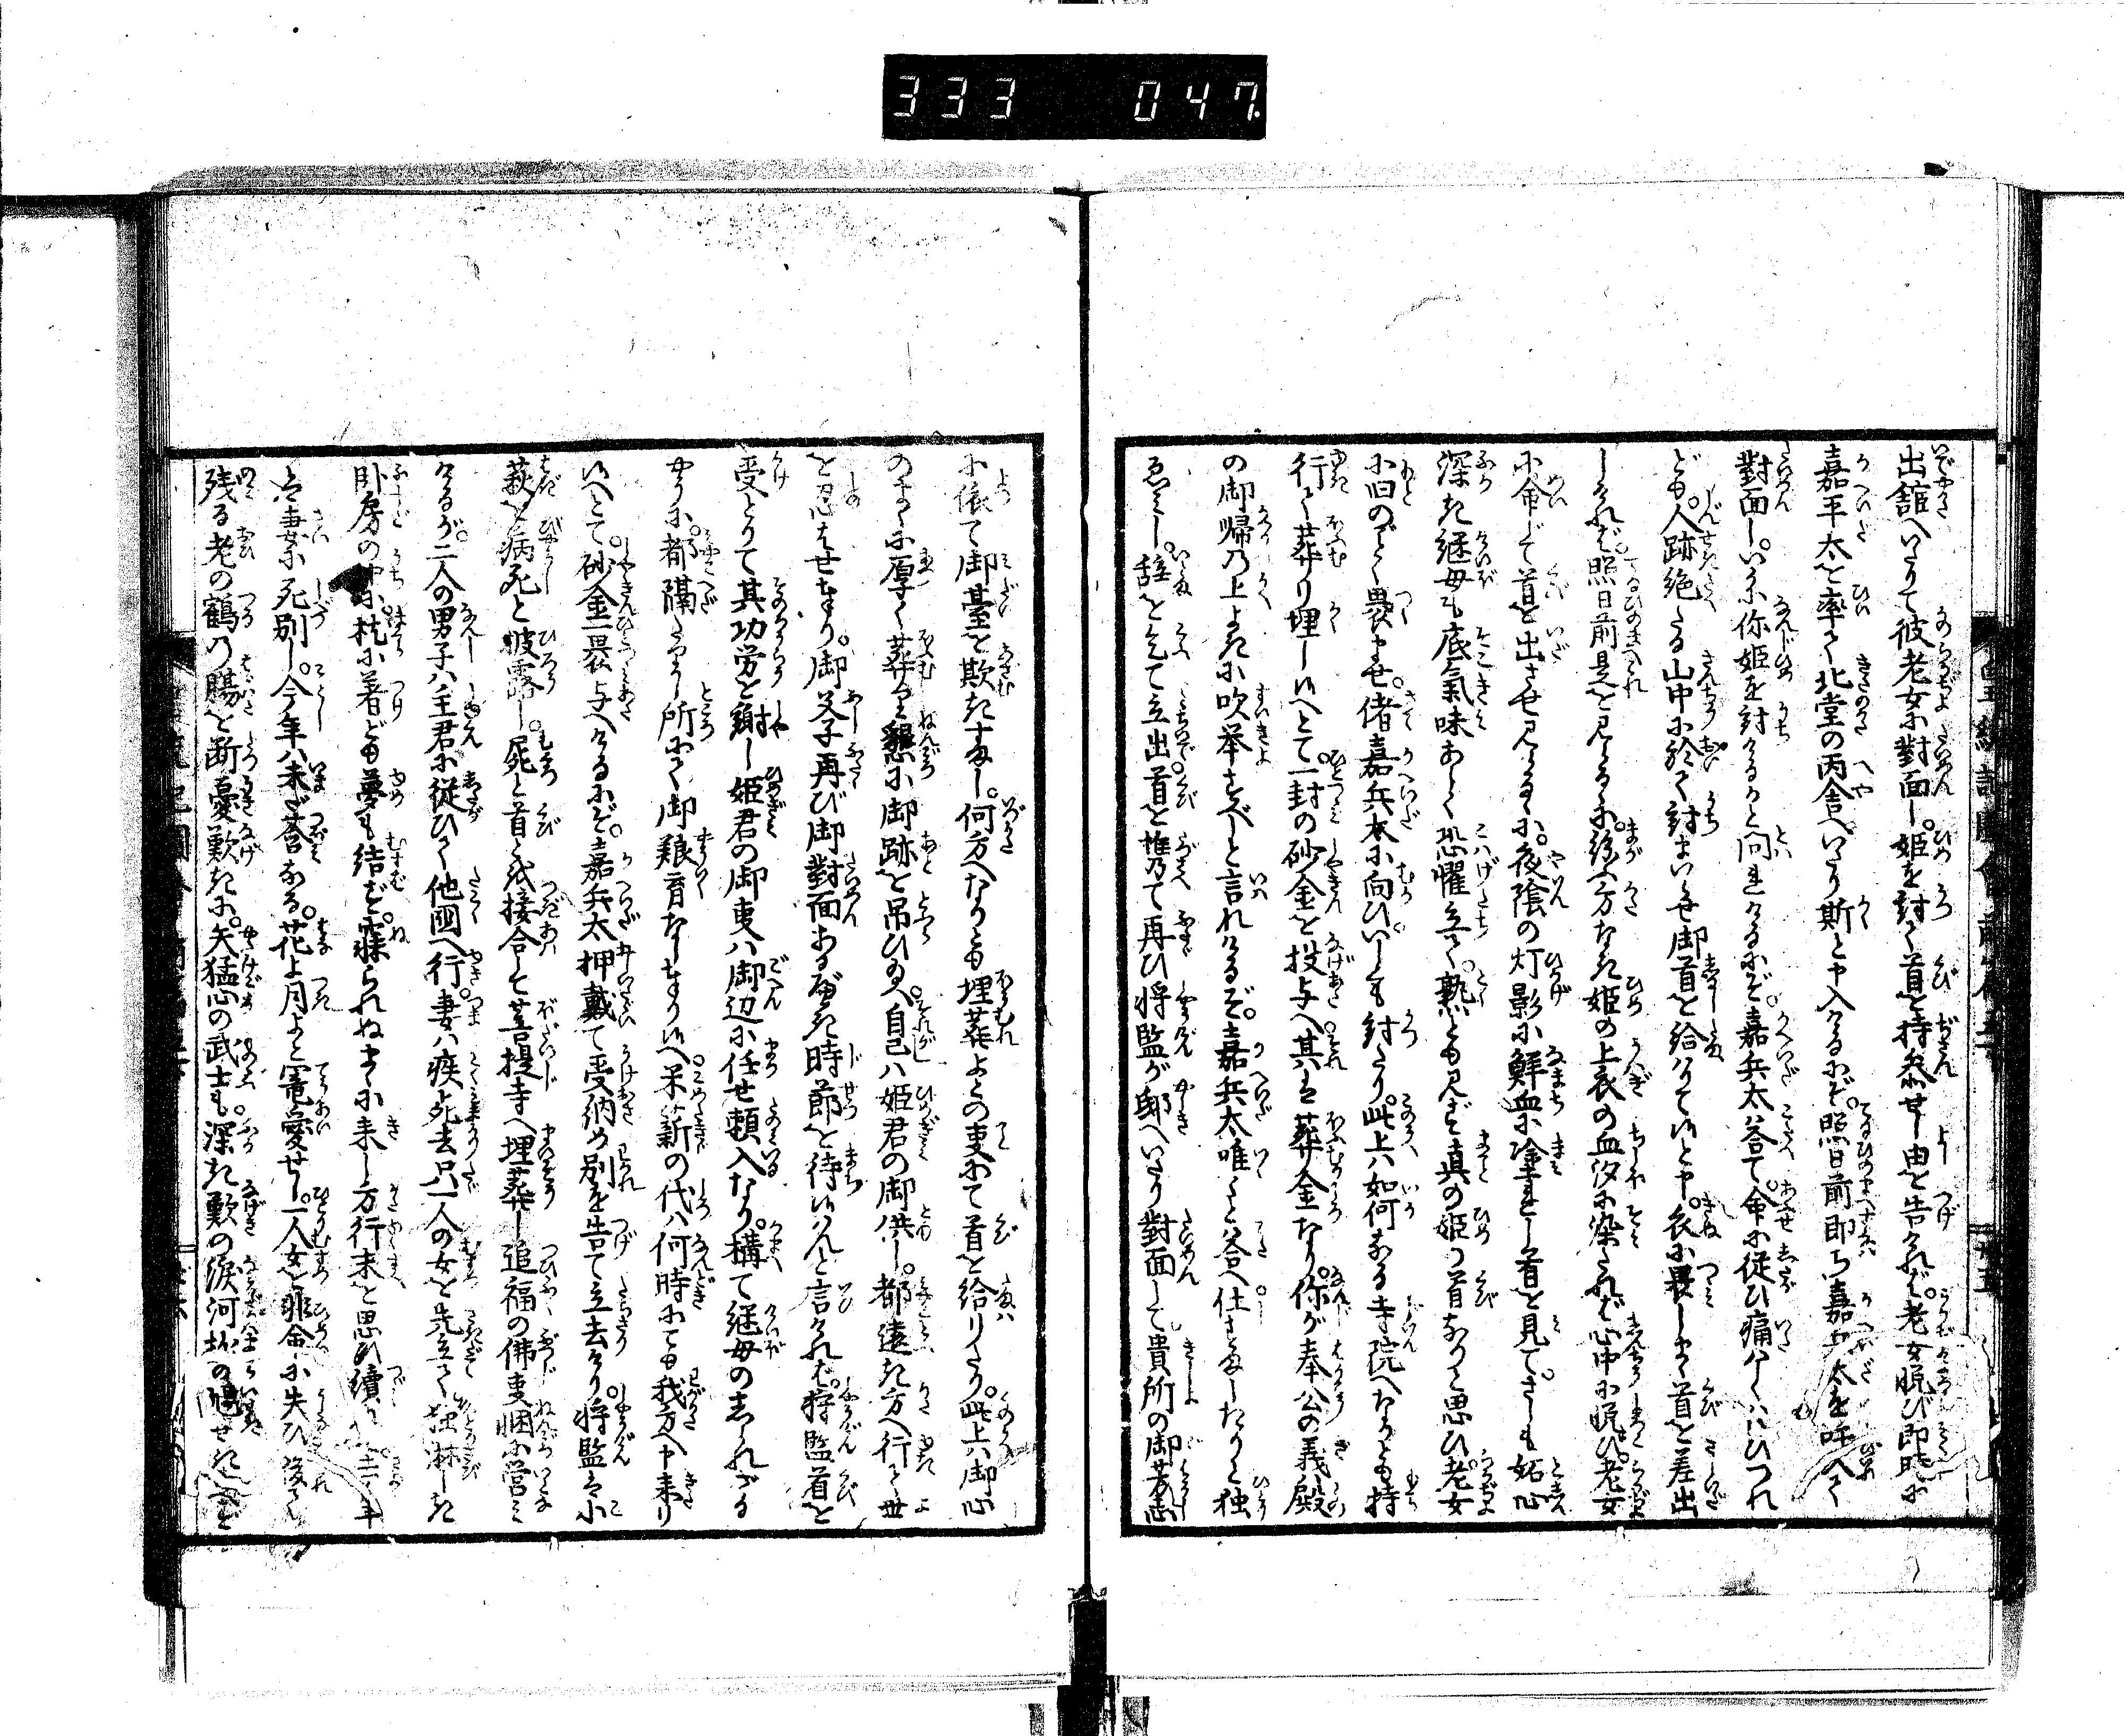 333 047
出舘へいたりて彼老女に對面し。姫を討て首を持参せし由を告ければ。老女脱び即時に
嘉平太を率て北堂の丙舎へいたり斯と申入けるにぞ。照日前即ち嘉平太を呼入て
對面し。いかに你姫を討けるかと問れけるにぞ。嘉兵太荅て。命に従ひ痛しくハいひつれ
ども。人跡絶たる山中に於て討まいらせ御首を給ハりていと申。衣に裹し首を差出
しければ。照日前是を見るに。紛ふ方なき姫の上衣の血汐に染たれば心中に悦び。老女
に命じて首を出させ見るに。夜陰の灯影に鮮血に塗れし首を見て。さしも妬心
深き継母も底氣味あしく恐懼立て。熟とも見ず真の姫の首なりと思ひ。老女
に旧のごとく裹ませ。偖嘉兵太に向ひ。いしくも討たり。此上ハ如何なる寺院へなりとも持
行て葬り埋しいへとて。一封の砂金を投与へ其ハ葬金なり。你が奉公の義殿
の御帰の上よきに吹挙すべしと言れけるにぞ。嘉兵太唯々と荅へ仕すましたりと独
ゑみし。辞を乞て立出首を携て再び将監が邸へいたり對面して貴所の御芳志
に依て御臺を欺き十なし。何方へなりとも埋葬よとの叓にて首を給りたり。此上ハ御心
のまゝに厚く葬り懇に御跡を吊ひ給へ自己ハ姫君の御供し。都遠き方へ行て世
を忍ばせまゐり。御父子再び御對面あるべき時節を待いハんと言ければ。将監首を
受とりて其功労を謝し姫君の御叓ハ御辺に任せ頼入なり。構て継母のしれざる
やうに。都隔たりし所にて御艱育なしまゐらせいへ。米薪の代ハ何時にても我方へ申来り
いへとて。砂金一裹与へけるにぞ。嘉兵太押戴て受納め別を告て立去けり。将監ハ小
萩を病死と披露し。屍と首を接合せ菩提寺へ埋葬し追福の佛叓悃に営み
けるが。二人の男子ハ主君に従ひて他國へ行。妻ハ疾死去只一人の女を先立て独淋しき
卧房の中に。枕に着ども夢も結ばず。寐られぬまゝに来し方行末を思ひ續け三年
ハ妻に死別し。今年ハ未だ莟なる。花よ月よと寵愛せし。一人女を非命に失ひ後て
残る老の鶴の膓を断憂歎きに。矢猛心の武士も。深き歎の涙河